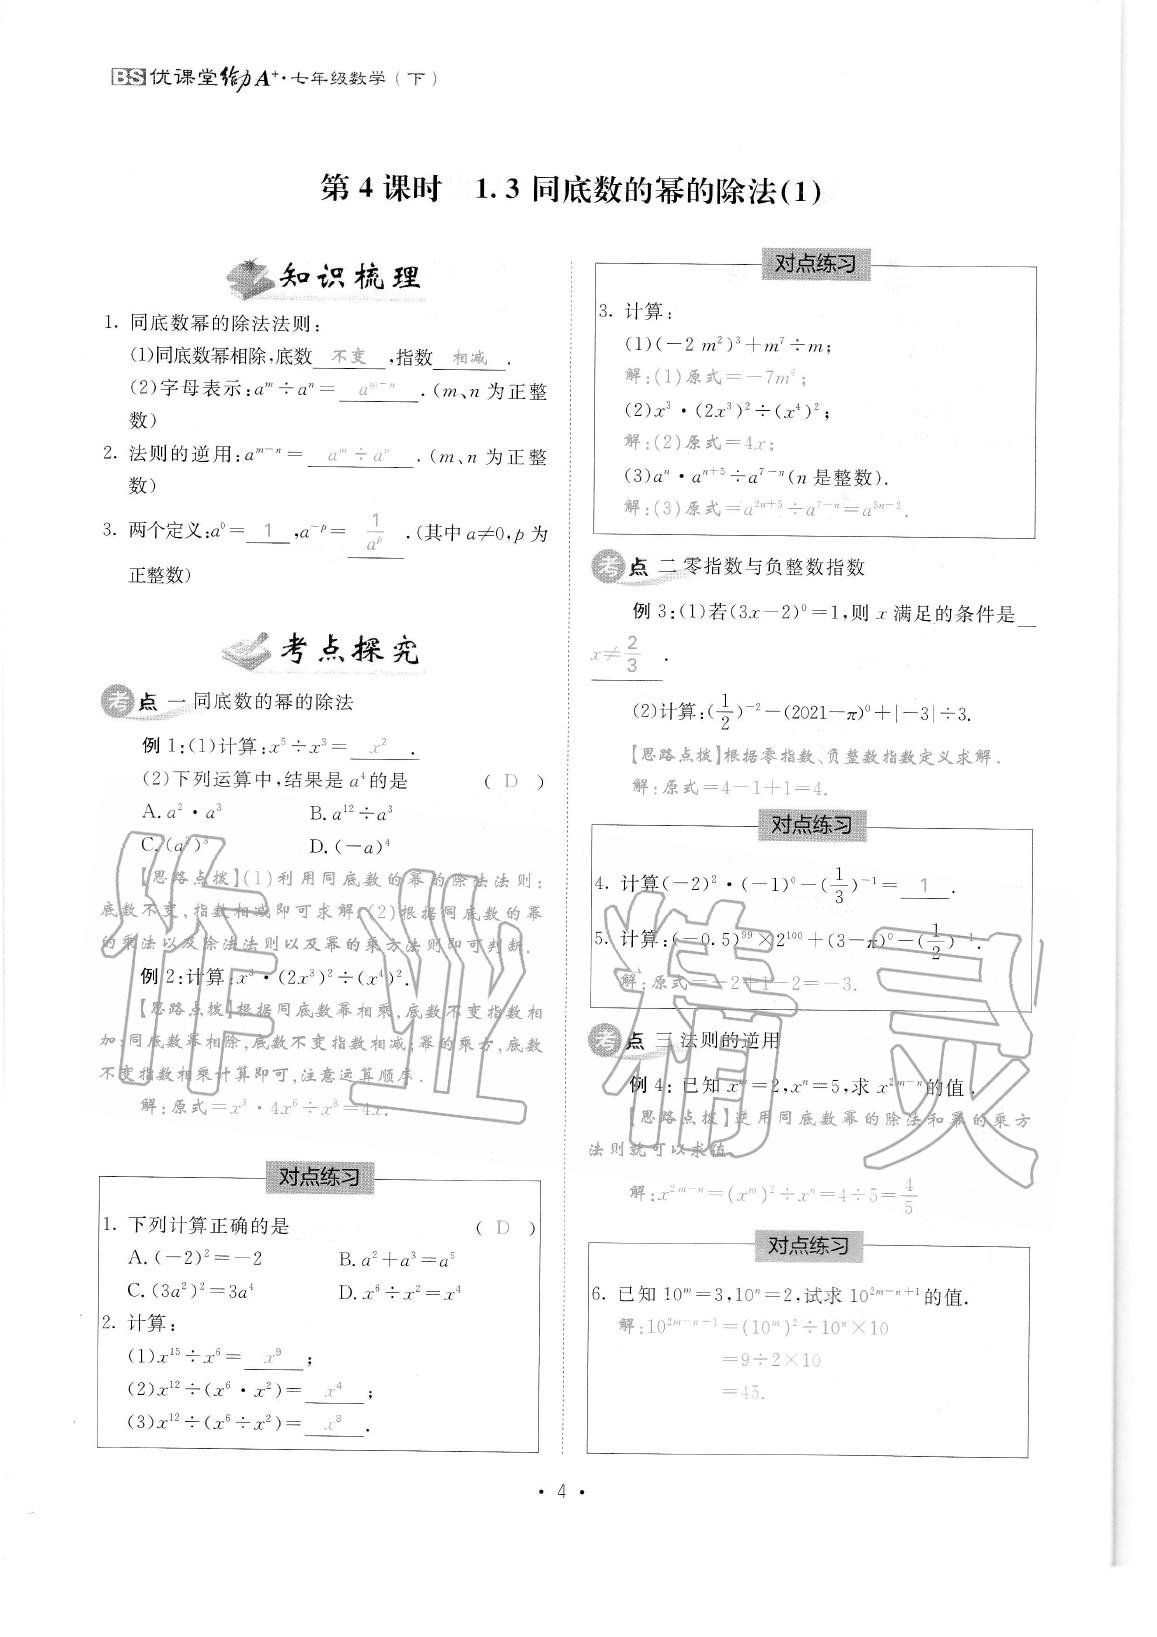 BS优课堂给力A⁺·七年级数学(下)
第4课时 1.3 同底数的幂的除法(1)
知识梳理
1. 同底数幂的除法法则:
(1)同底数幂相除,底数 不变 ,指数 相减 .
(2)字母表示:aᵐ÷aⁿ= aᵐ⁻ⁿ .(m、n 为正整
数)
2. 法则的逆用:aᵐ⁻ⁿ= aᵐ÷aⁿ .(m、n 为正整
数)
3. 两个定义:a⁰= 1 ,a⁻ᵖ= 1/aᵖ .(其中 a≠0,p 为
正整数)
考点探究
考点 一 同底数的幂的除法
例 1:(1)计算:x⁵÷x³= x² .
(2)下列运算中,结果是 a⁴的是 ( D )
A. a²·a³ B. a¹²÷a³
C. (a²)³ D. (-a)⁴
【思路点拨】(1)利用同底数的幂的除法法则:
底数不变,指数相减即可求解;(2)根据同底数的幂
的乘法以及除法法则以及幂的乘方法则即可判断.
例 2:计算:x³·(2x³)²÷(x⁴)².
【思路点拨】根据同底数幂相乘,底数不变指数相
加;同底数幂相除,底数不变指数相减;幂的乘方,底数
不变指数相乘计算即可,注意运算顺序.
解:原式=x³·4x⁶÷x⁸=4x.
对点练习
1. 下列计算正确的是 ( D )
A. (-2)²=-2 B. a²+a³=a⁵
C. (3a²)²=3a⁴ D. x⁶÷x²=x⁴
2. 计算:
(1)x¹⁵÷x⁶= x⁹ ;
(2)x¹²÷(x⁶·x²)= x⁴ ;
(3)x¹²÷(x⁶÷x²)= x⁸ .
对点练习
3. 计算:
(1)(-2 m²)³+m⁷÷m;
解:(1)原式=-7m⁶;
(2)x³·(2x³)²÷(x⁴)²;
解:(2)原式=4x;
(3)aⁿ·aⁿ⁺⁵÷a⁷⁻ⁿ(n 是整数).
解:(3)原式=a²ⁿ⁺⁵÷a⁷⁻ⁿ=a³ⁿ⁻².
考点 二 零指数与负整数指数
例 3:(1)若(3x-2)⁰=1,则 x 满足的条件是
x≠2/3 .
(2)计算:(1/2)⁻²-(2021-π)⁰+|-3|÷3.
【思路点拨】根据零指数、负整数指数定义求解.
解:原式=4-1+1=4.
对点练习
4. 计算(-2)²·(-1)⁰-(1/3)⁻¹= 1 .
5. 计算:(-0.5)⁹⁹×2¹⁰⁰+(3-π)⁰-(1/2)⁻¹.
解:原式=-2+1-2=-3.
考点 三 法则的逆用
例 4:已知 xᵐ=2,xⁿ=5,求 x²ᵐ⁻ⁿ的值.
【思路点拨】逆用同底数幂的除法和幂的乘方
法则就可以求值.
解:x²ᵐ⁻ⁿ=(xᵐ)²÷xⁿ=4÷5=4/5
对点练习
6. 已知 10ᵐ=3,10ⁿ=2,试求 10²ᵐ⁻ⁿ⁺¹的值.
解:10²ᵐ⁻ⁿ⁺¹=(10ᵐ)²÷10ⁿ×10
=9÷2×10
=45.
· 4 ·
作业精灵